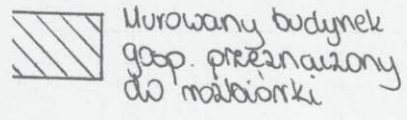 Murowany budynek
gosp. przeznaczony
do rozbiórki